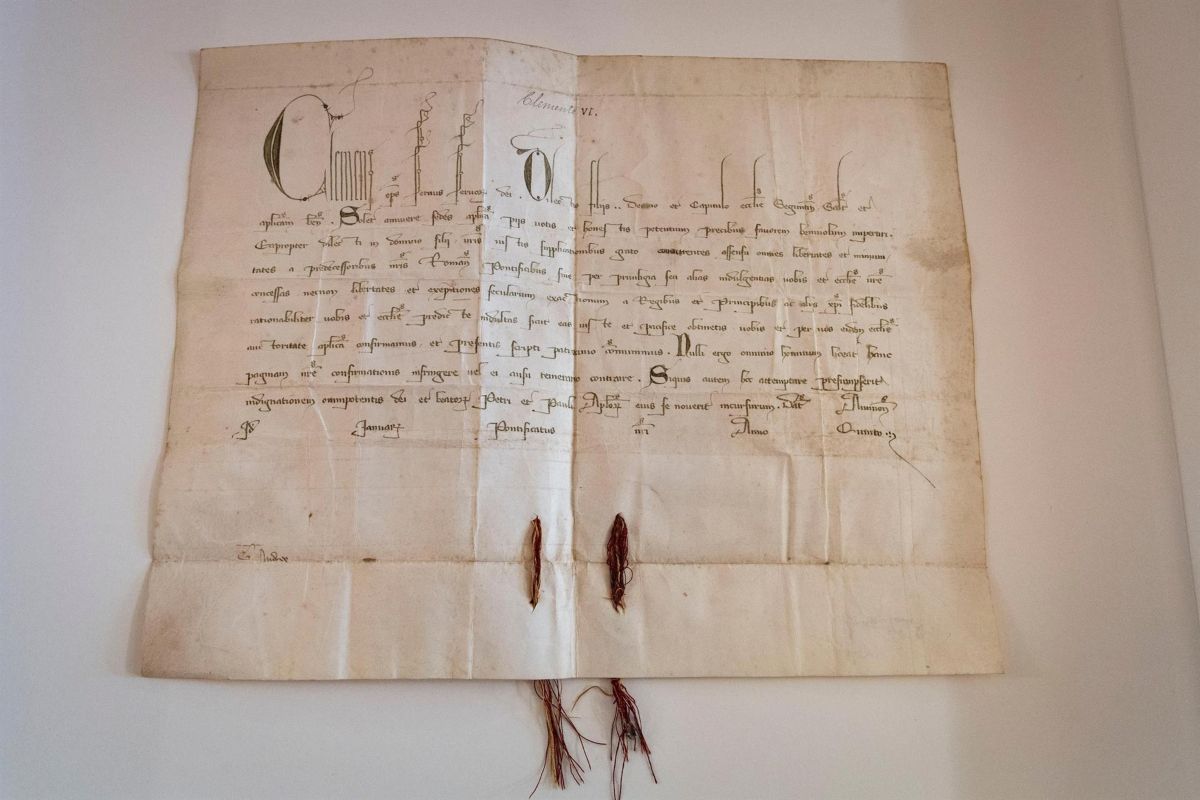 Clemente VI.
Clemens ep̄s servus servoꝝ dei . Dilectis filiis .. Decano et Capitulo eccl̄ie Seguntin̄ Salt̄ et
aplicam ben̄ . Solet annuere sedes aplica piis votis et honestis petentium precibus favorem benivolum impertiri.
Eapropter dilecti in domino filii vr̄is iustis supplicationibus grato concurrentes assensu omnes libertates et immuni
tates a predecessoribus nr̄is Roman̄ Pontificibus sive per privilegia seu alias indulgentias vobis et eccl̄ie vr̄e
concessas necnon libertates et exeptiones secularium exactionum a Regibus et Principibus ac aliis xp̄i fidelibus
rationabiliter vobis et eccl̄ie predicte indultas sicut eas iuste et pacifice obtinetis vobis et per vos eidem eccl̄ie
auctoritate aplica confirmamus et presentis scripti patrocinio com̄unimus . Nulli ergo omnino hominum liceat hanc
paginam nr̄e confirmationis infringere vel ei ausu temerario contraire . Siquis autem hoc attemptare presumpserit
indignationem omnipotentis dei et beatoꝝ Petri et Pauli Aploꝝ eius se noverit incursurum . Dat̄ Avinion̄
Id̄ Januarꝝ Pontificatus nr̄i Anno Quinto